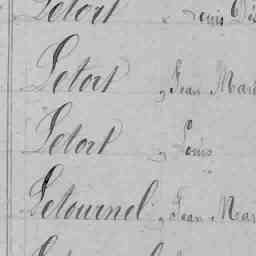 Letort Louis
Letort, Jean Mari
Letort, Louis
Letournel, Jean Mar